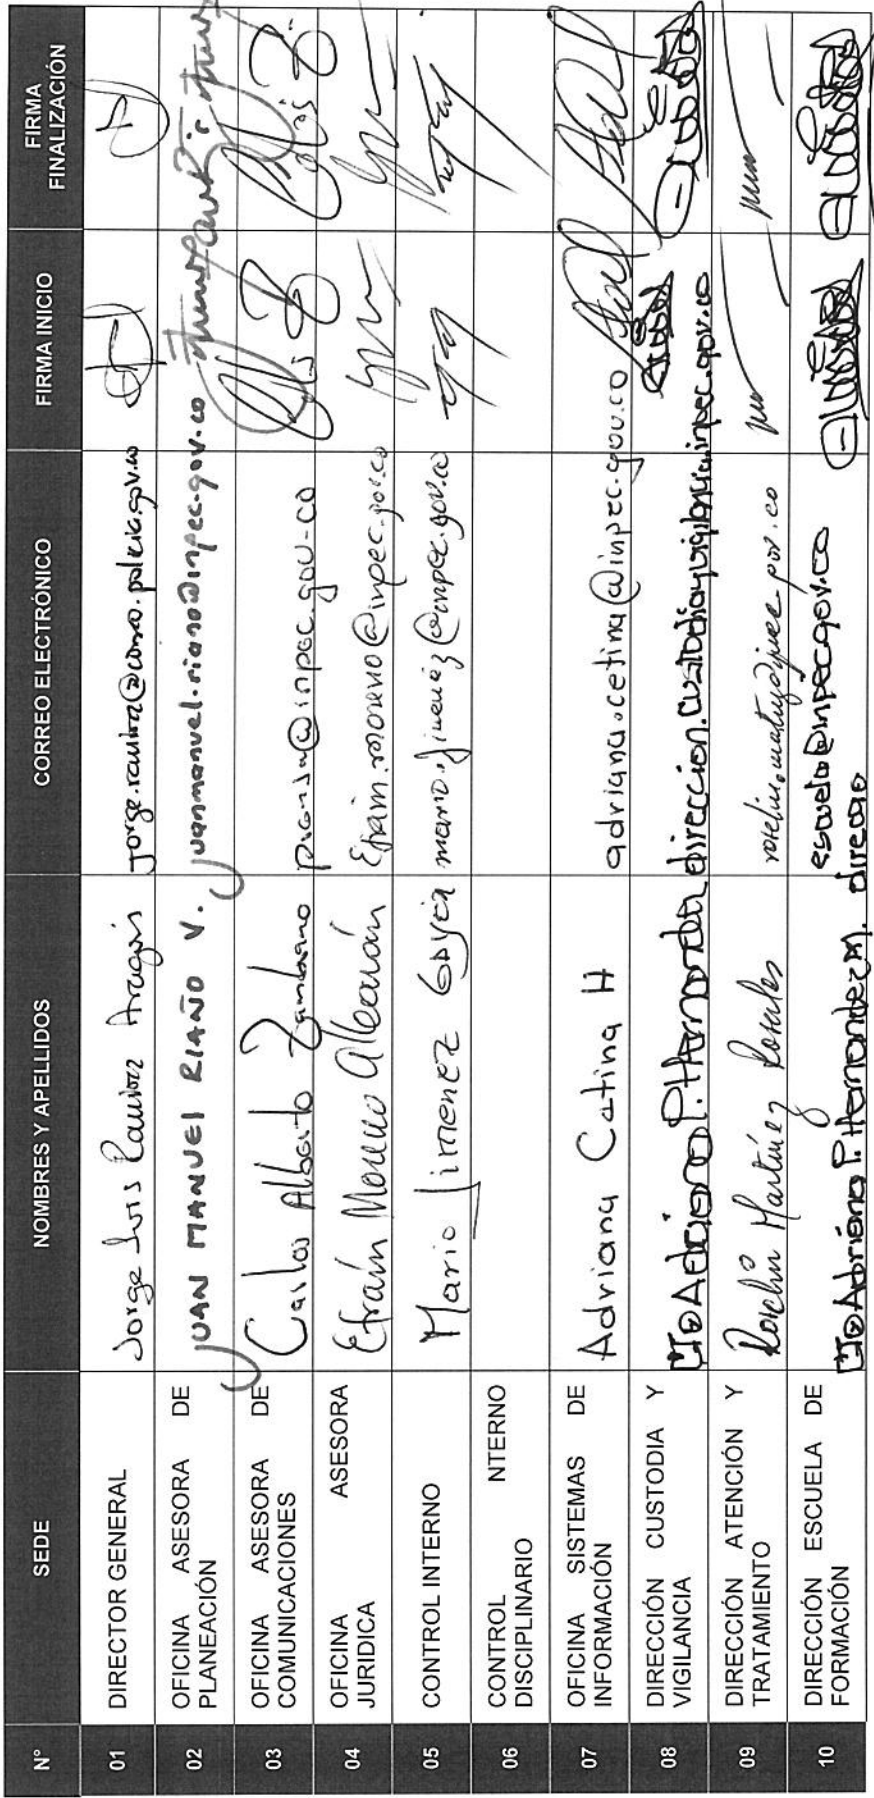 N° SEDE NOMBRES Y APELLIDOS CORREO ELECTRÓNICO FIRMA INICIO FIRMA FINALIZACIÓN
01 DIRECTOR GENERAL Jorge Luis Ramirez Aragón jorge.ramirez@correo.policia.gov.co
02 OFICINA ASESORA DE PLANEACIÓN JUAN MANUEL RIAÑO V. juanmanuel.riano@inpec.gov.co
03 OFICINA ASESORA DE COMUNICACIONES Carlos Alberto Zambrano prensa@inpec.gov.co
04 OFICINA ASESORA JURIDICA Efraín Moreno Albarán Efrain.moreno@inpec.gov.co
05 CONTROL INTERNO Mario Jimenez Gayón mario.jimenez@inpec.gov.co
06 CONTROL NTERNO DISCIPLINARIO
07 OFICINA SISTEMAS DE INFORMACIÓN Adriana Cetina H adriana.cetina@inpec.gov.co
08 DIRECCIÓN CUSTODIA Y VIGILANCIA Adriana P. Hernandez direccion.custodiayvigilancia.inpec.gov.co
09 DIRECCIÓN ATENCIÓN Y TRATAMIENTO Roselin Martínez Rosales
10 DIRECCIÓN ESCUELA DE FORMACIÓN Adriana P. Hernandez M. direccion escuela@inpec.gov.co